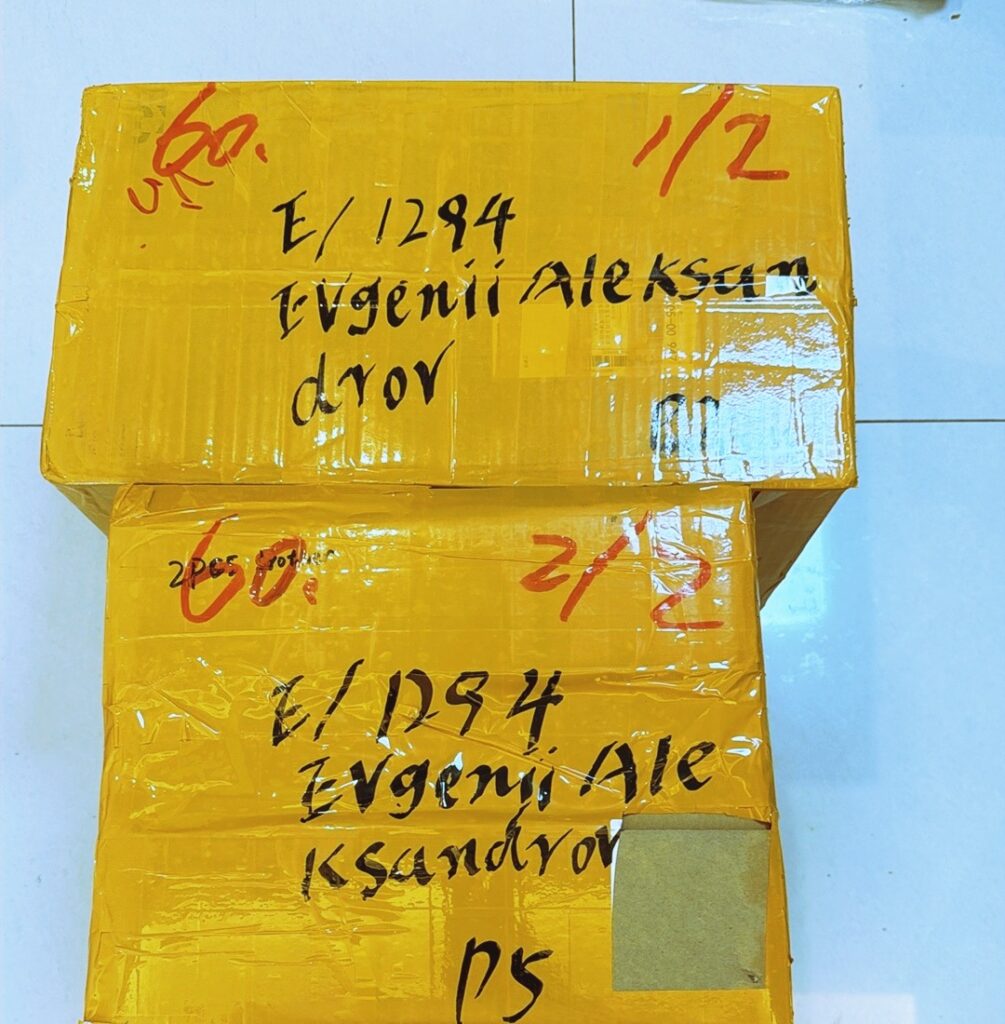 60.
1/2
E/1294
Evgenii Aleksan
drov
60.
2/2
2pcs
E/1294
Evgenii Ale
ksandrov
P5